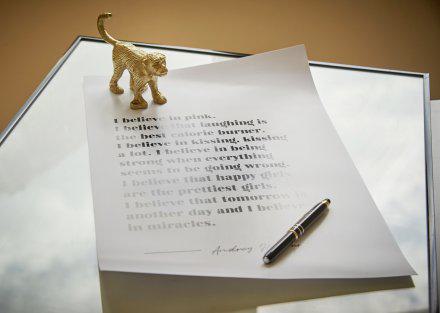 I believe in pink.
I believe that laughing is
the best calorie burner.
I believe in kissing, kissing
a lot. I believe in being
strong when everything
seems to be going wrong.
I believe that happy girls
are the prettiest girls.
I believe that tomorrow is
another day and I believe
in miracles.
Audrey